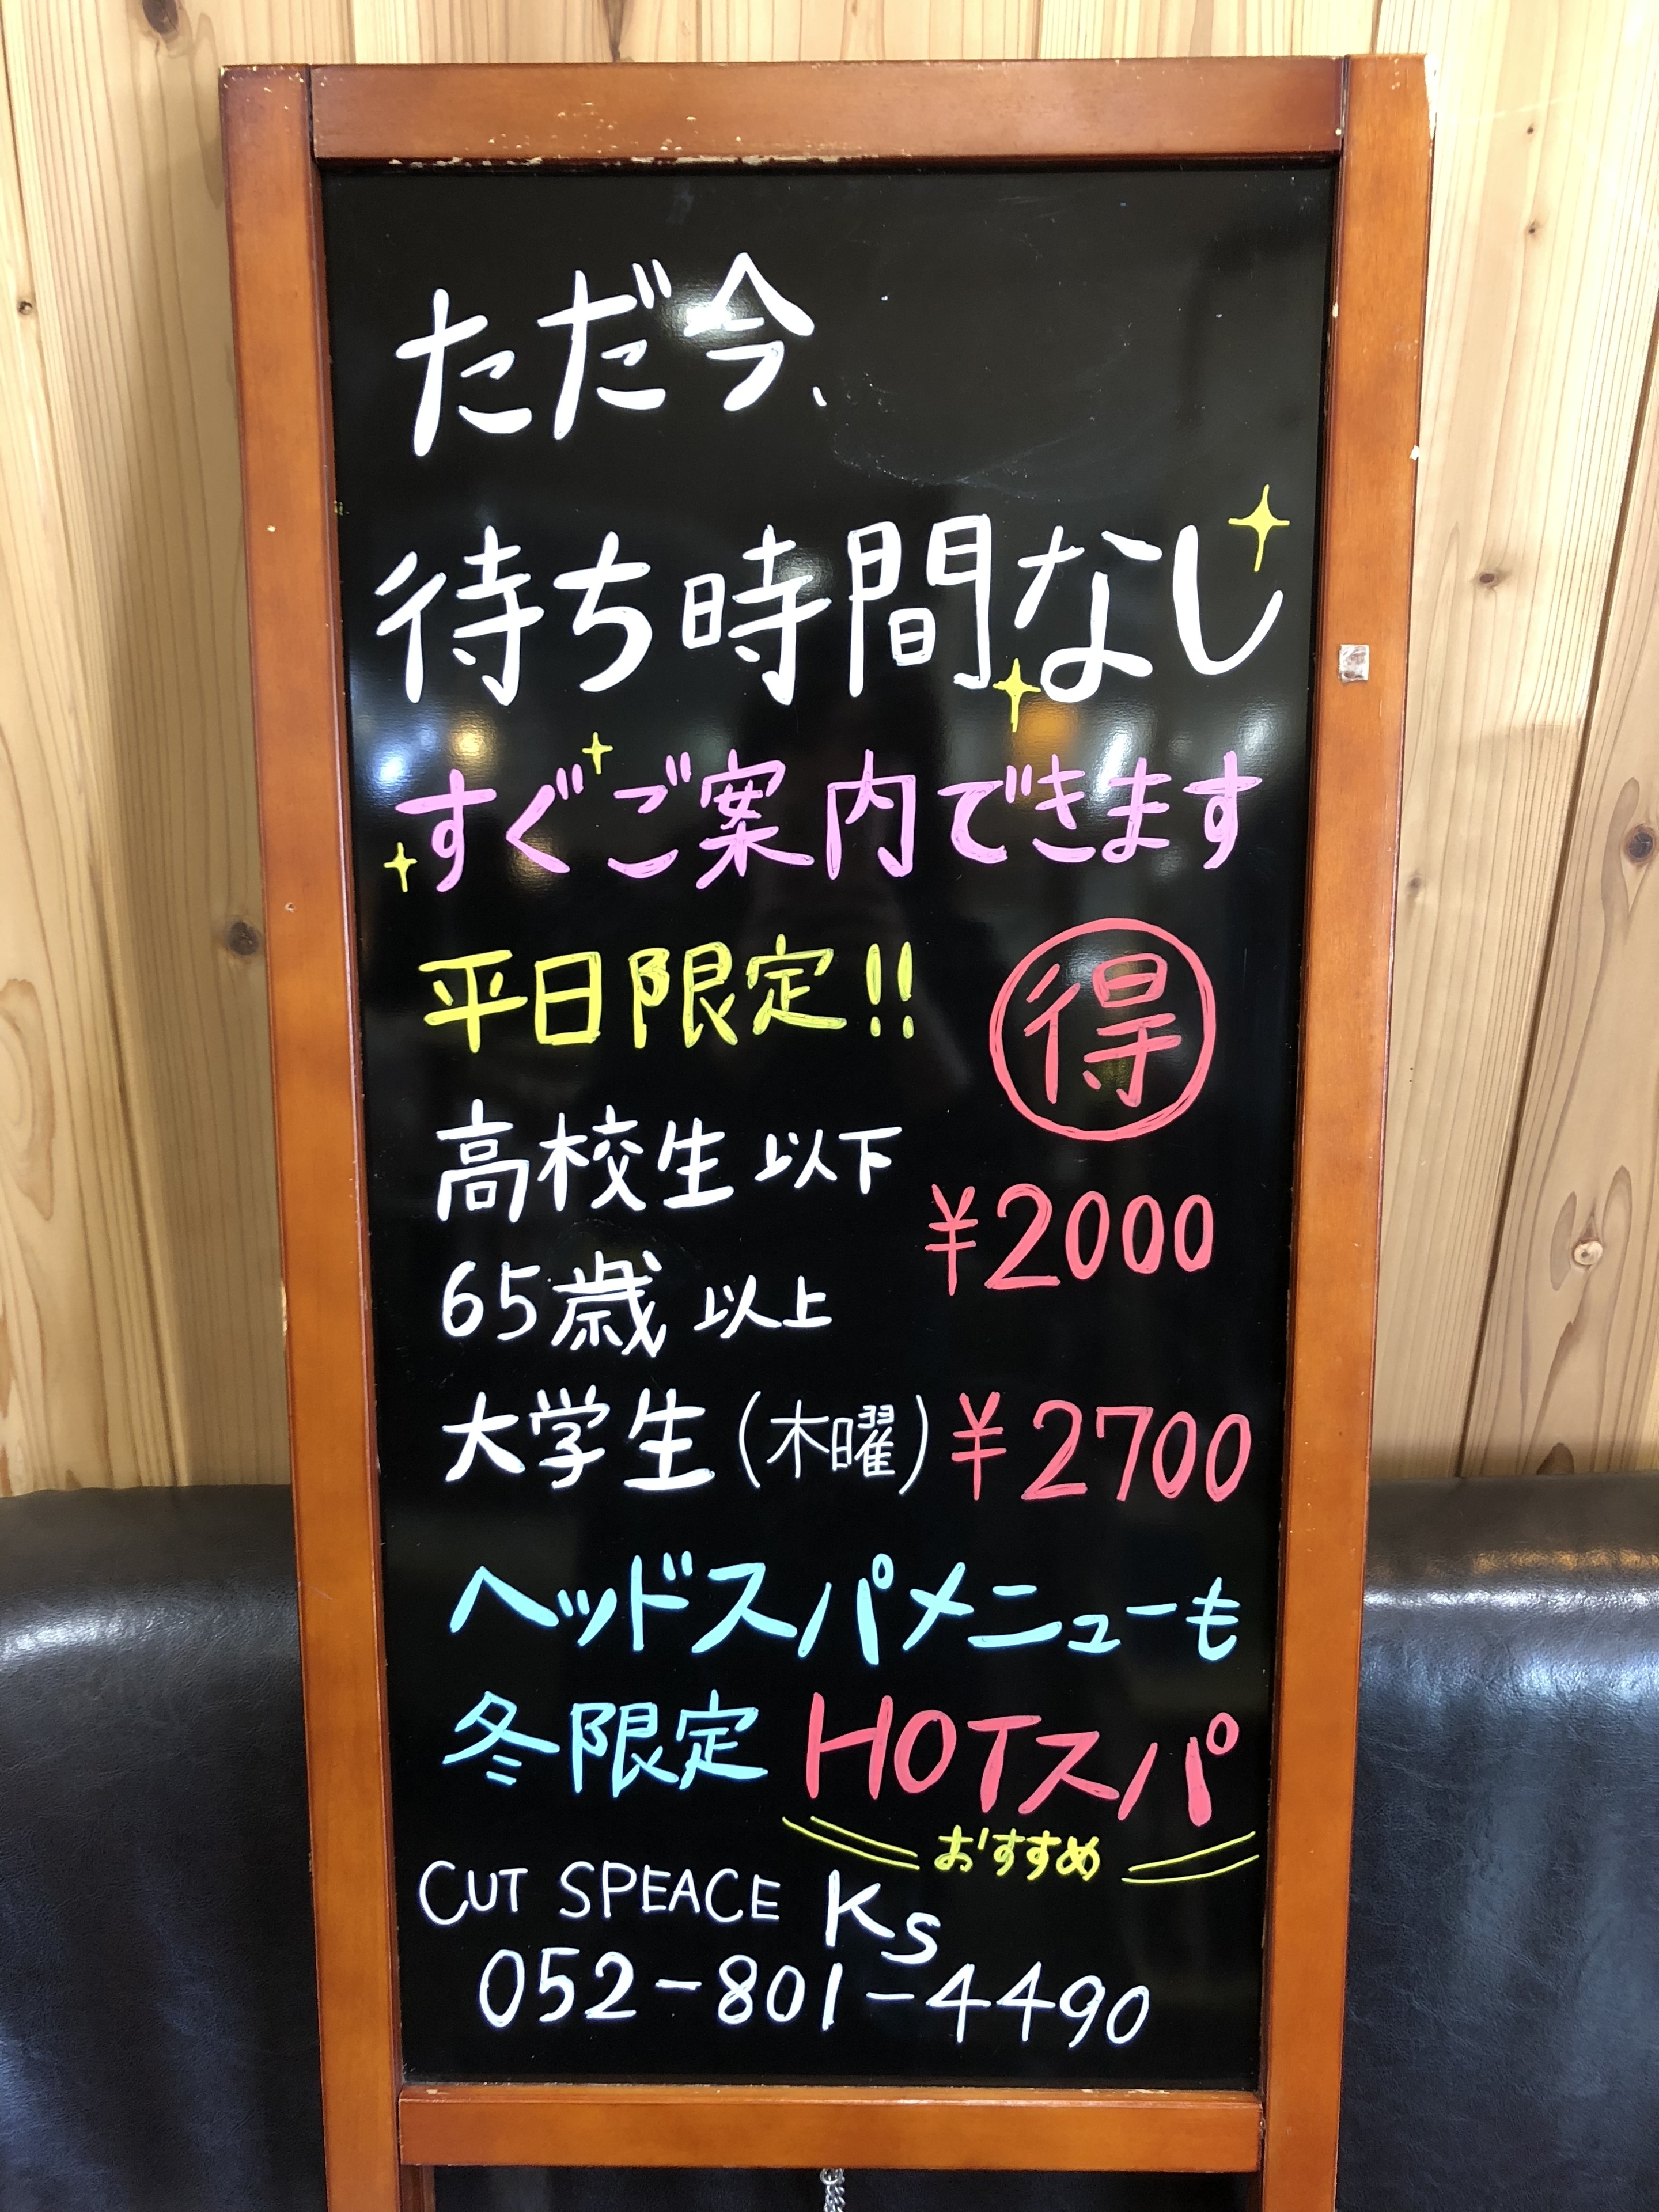 ただ今、
待ち時間なし
すぐご案内できます
平日限定!!
得
高校生以下
¥2000
65歳以上
大学生(木曜) ¥2700
ヘッドスパメニューも
冬限定 HOTスパ
おすすめ
CUT SPEACE Ks
052-801-4490